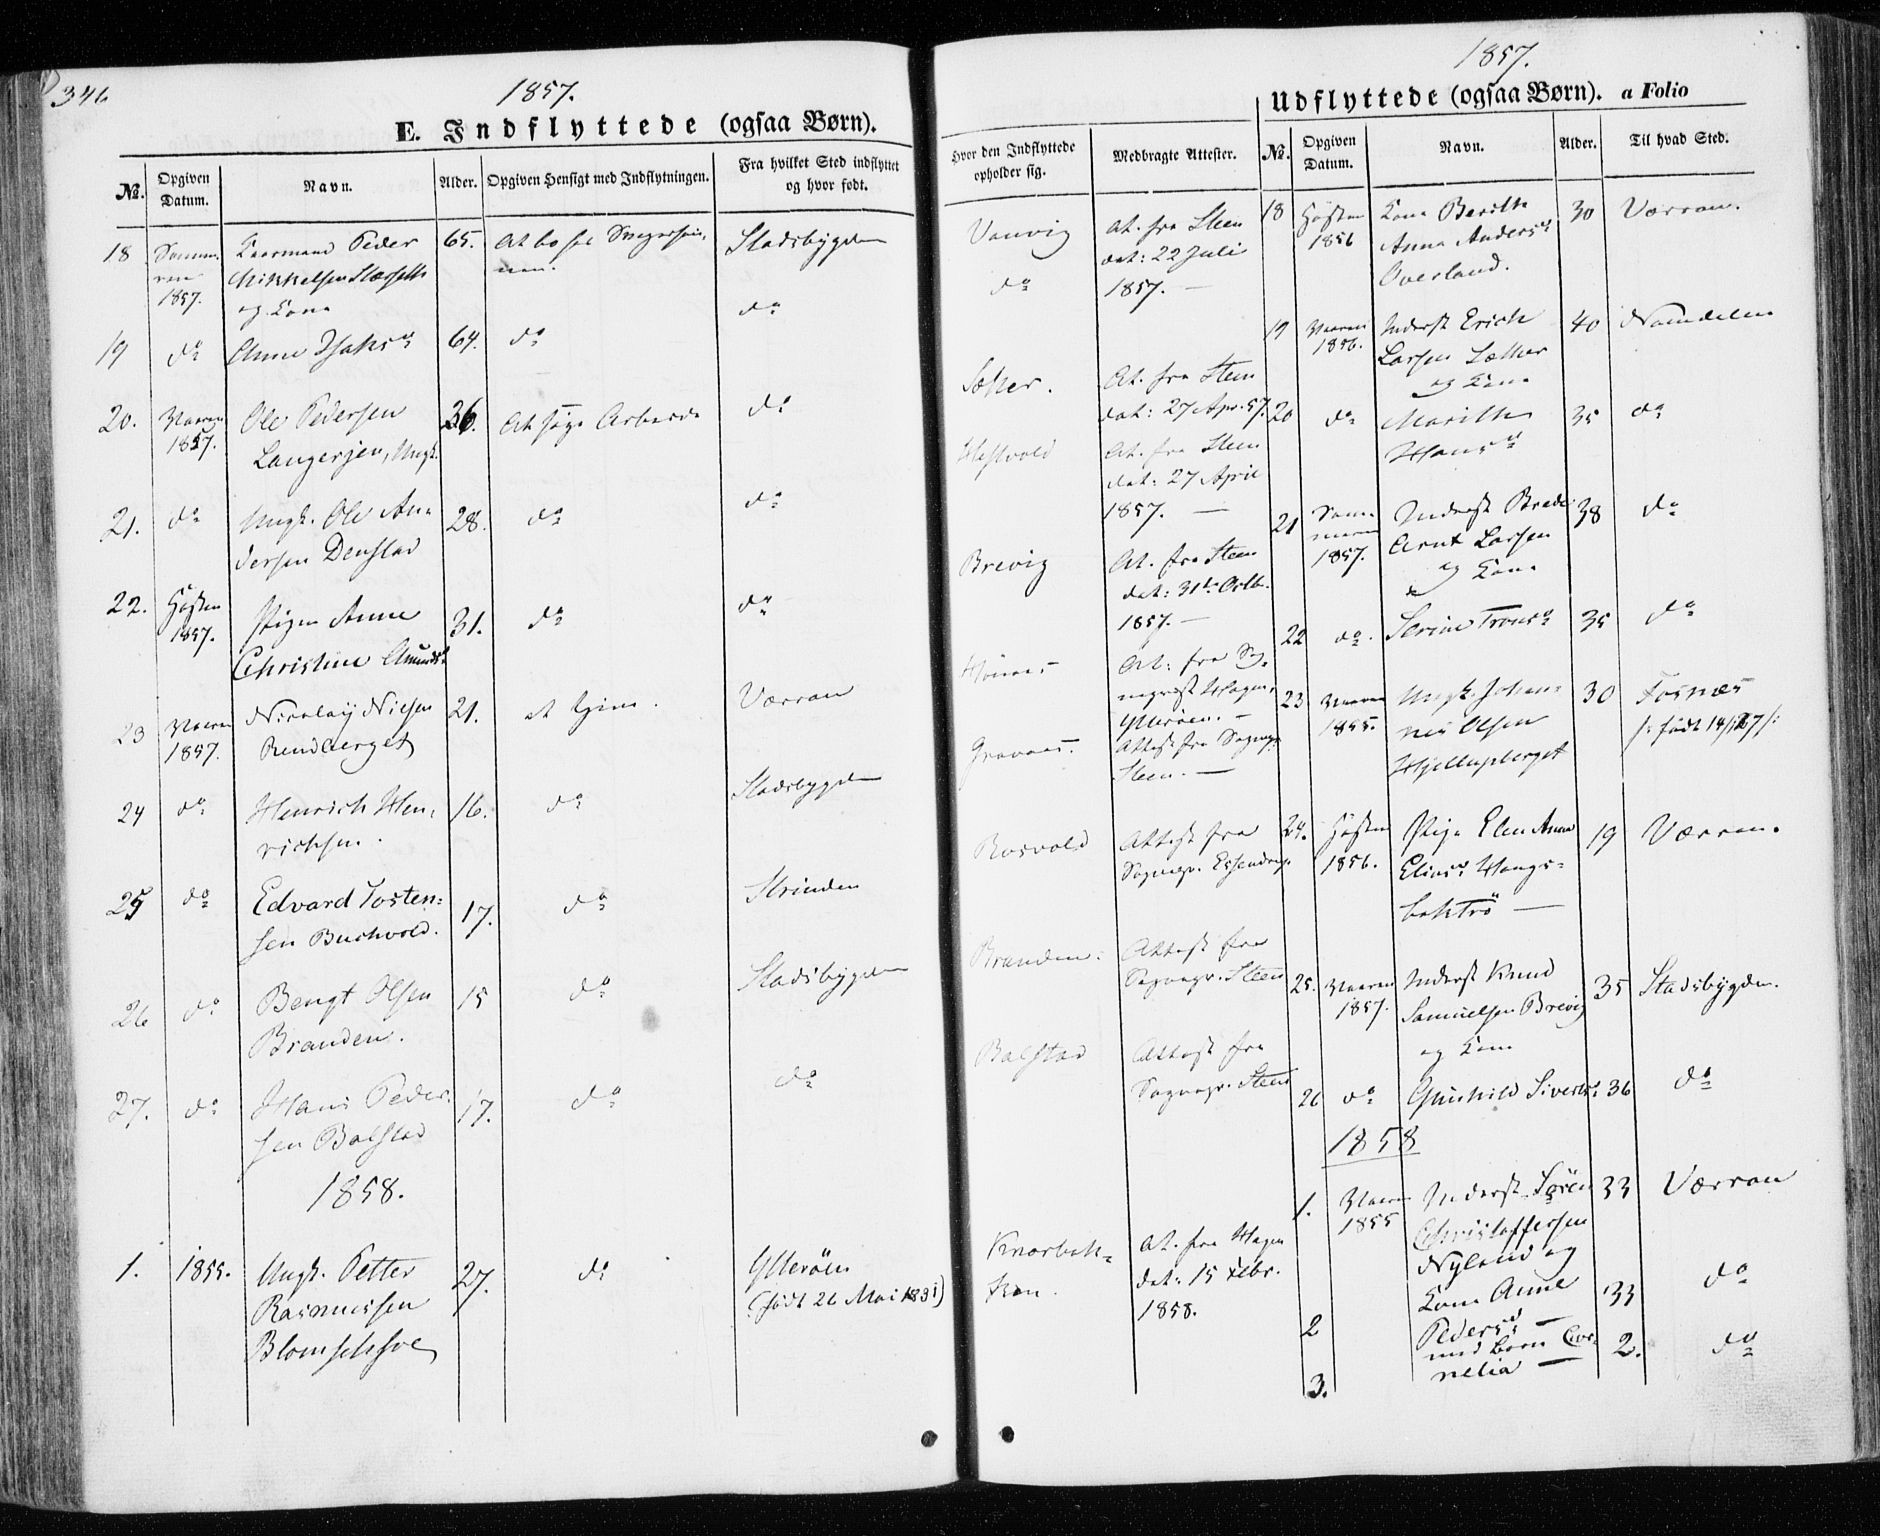 346
1857.
E. Indflyttede (ogsaa Børn).
No. Opgiven Datum. Navn. Alder. Opgiven Hensigt med Indflytningen. Fra hvilket Sted indflyttet og hvor født.
18 Sommeren 1857. Peder 65. At bo hos Stadsbygden
Mikkelsen
og Kone
19 do Anne Isaksd 64. do do
20. Vaaren 1857. Ole Pedersen 36. At søge Arbeide do
Langersæn, Ungk.
21. do Ungk. Ole An= 28. do do
dersen Denstad
22. Høsten 1857. Pigen Anne 31. do do
Christine Amundsd
23 Vaaren 1857. Nicolaij Nielsen 21. at tjene. Værran
Rendberget
24 do Henrich Hen= 16. do Stadsbygden
richsen.
25 do Edvard Tosten= 17. do Strinden
sen Buchvold.
26 do Bengt Olsen 15 do Stadsbygden
Branden.
27. do Hans Peder= 17. do do
sen Balstad
1858.
1. 1855. Ungk. Petter 27. do Ytterøen
Rasmussen (født 26 Mai 1831)
1857.
Udflyttede (ogsaa Børn). a Folio
Hvor den Indflyttede opholder sig. Medbragte Attester. No. Opgiven Datum. Navn. Alder. Til hvad Sted.
Vanvig At. fra Steen 18 Høsten 1856 Kone Berith 30 Værran.
dat: 22 Juli Anna Andersd
do 1857. — Overland.
19 Vaaren 1856. Inderst Erich 40 Namdalen
Larsen Sæther
og Kone
Sæther. At. fra Steen
dat: 27 Apr. 57. 20 do Marith 35 do
Hansd
Hestvold At. fra Steen
dat: 27 April
1857. — 21 Sommeren 1857. Inderst Brede 38 do
Arnt Larsen
og Kone
Brevig At. fra Steen
dat: 31te Octb.
1857. — 22 do. Serine Tronsd 35 do
At: fra Sog=
nepræst Hagen,
Ytterøen. — 23 Vaaren 1855. Ungk. Johan= 30 Fosnæs
nes Olsen /: født 27 :/
Hjellupberget
Attest fra Sognepr.
Steen. —
Rosvold Attest fra 24. Høsten 1856. Pige Elen Anna 19 Værran.
Sognepr. Essendrop. Eliasd Hangs=
Branden. Attest fra
Sognepr. Steen 25. Vaaren 1857. Inderst Knud 35 Stadsbygden.
Samuelsen Brevig
og Kone
Balstad Attest fra
Sognepr. Steen 26 do Gunhild Sivertsd 36 do
1858
1. Vaaren 1855 Inderst Søren 33 Værran
Christoffersen
Nyland og
At. fra Hagen
dat: 15 Febr.
1858.
2 Kone Anne 33 do
Pedersd —
3. med Barn Cor= 2. do
nelia —